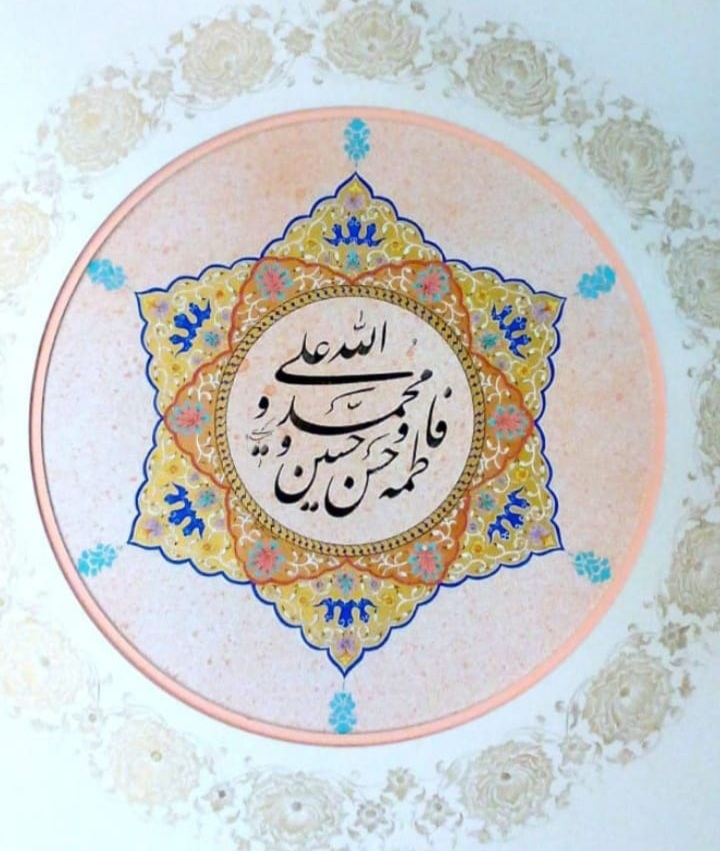 الله علی
محمد و
فاطمه و
حسن و حسین